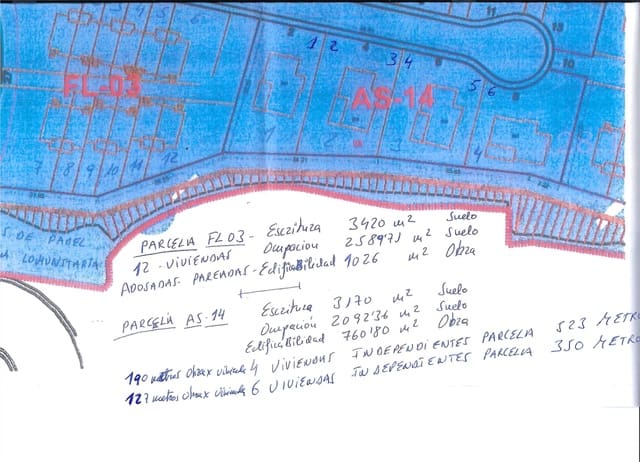 11
13
10
1 2
3 4
5 6
8
FL-03
AS-14
1
2
3
4
7 8 9 10 11 12
S DE PADEL
A COMUNITARIA
PARCELA FL03 - Escritura 3420 m2 Suelo
12 - VIVIENDAS Ocupacion 2589'71 m2 Suelo
ADOSADAS PAREADAS - Edificabilidad 1026 m2 Obra
PARCELA AS-14 Escritura 3170 m2 Suelo
Ocupación 2092'36 m2 Suelo
Edificabilidad 760'80 m2 Obra
190 metros obra x vivienda 4 VIVIENDAS INDEPENDIENTES PARCELA 523 METRO
127 metros obra x vivienda 6 VIVIENDAS INDEPENDIENTES PARCELA 350 METRO